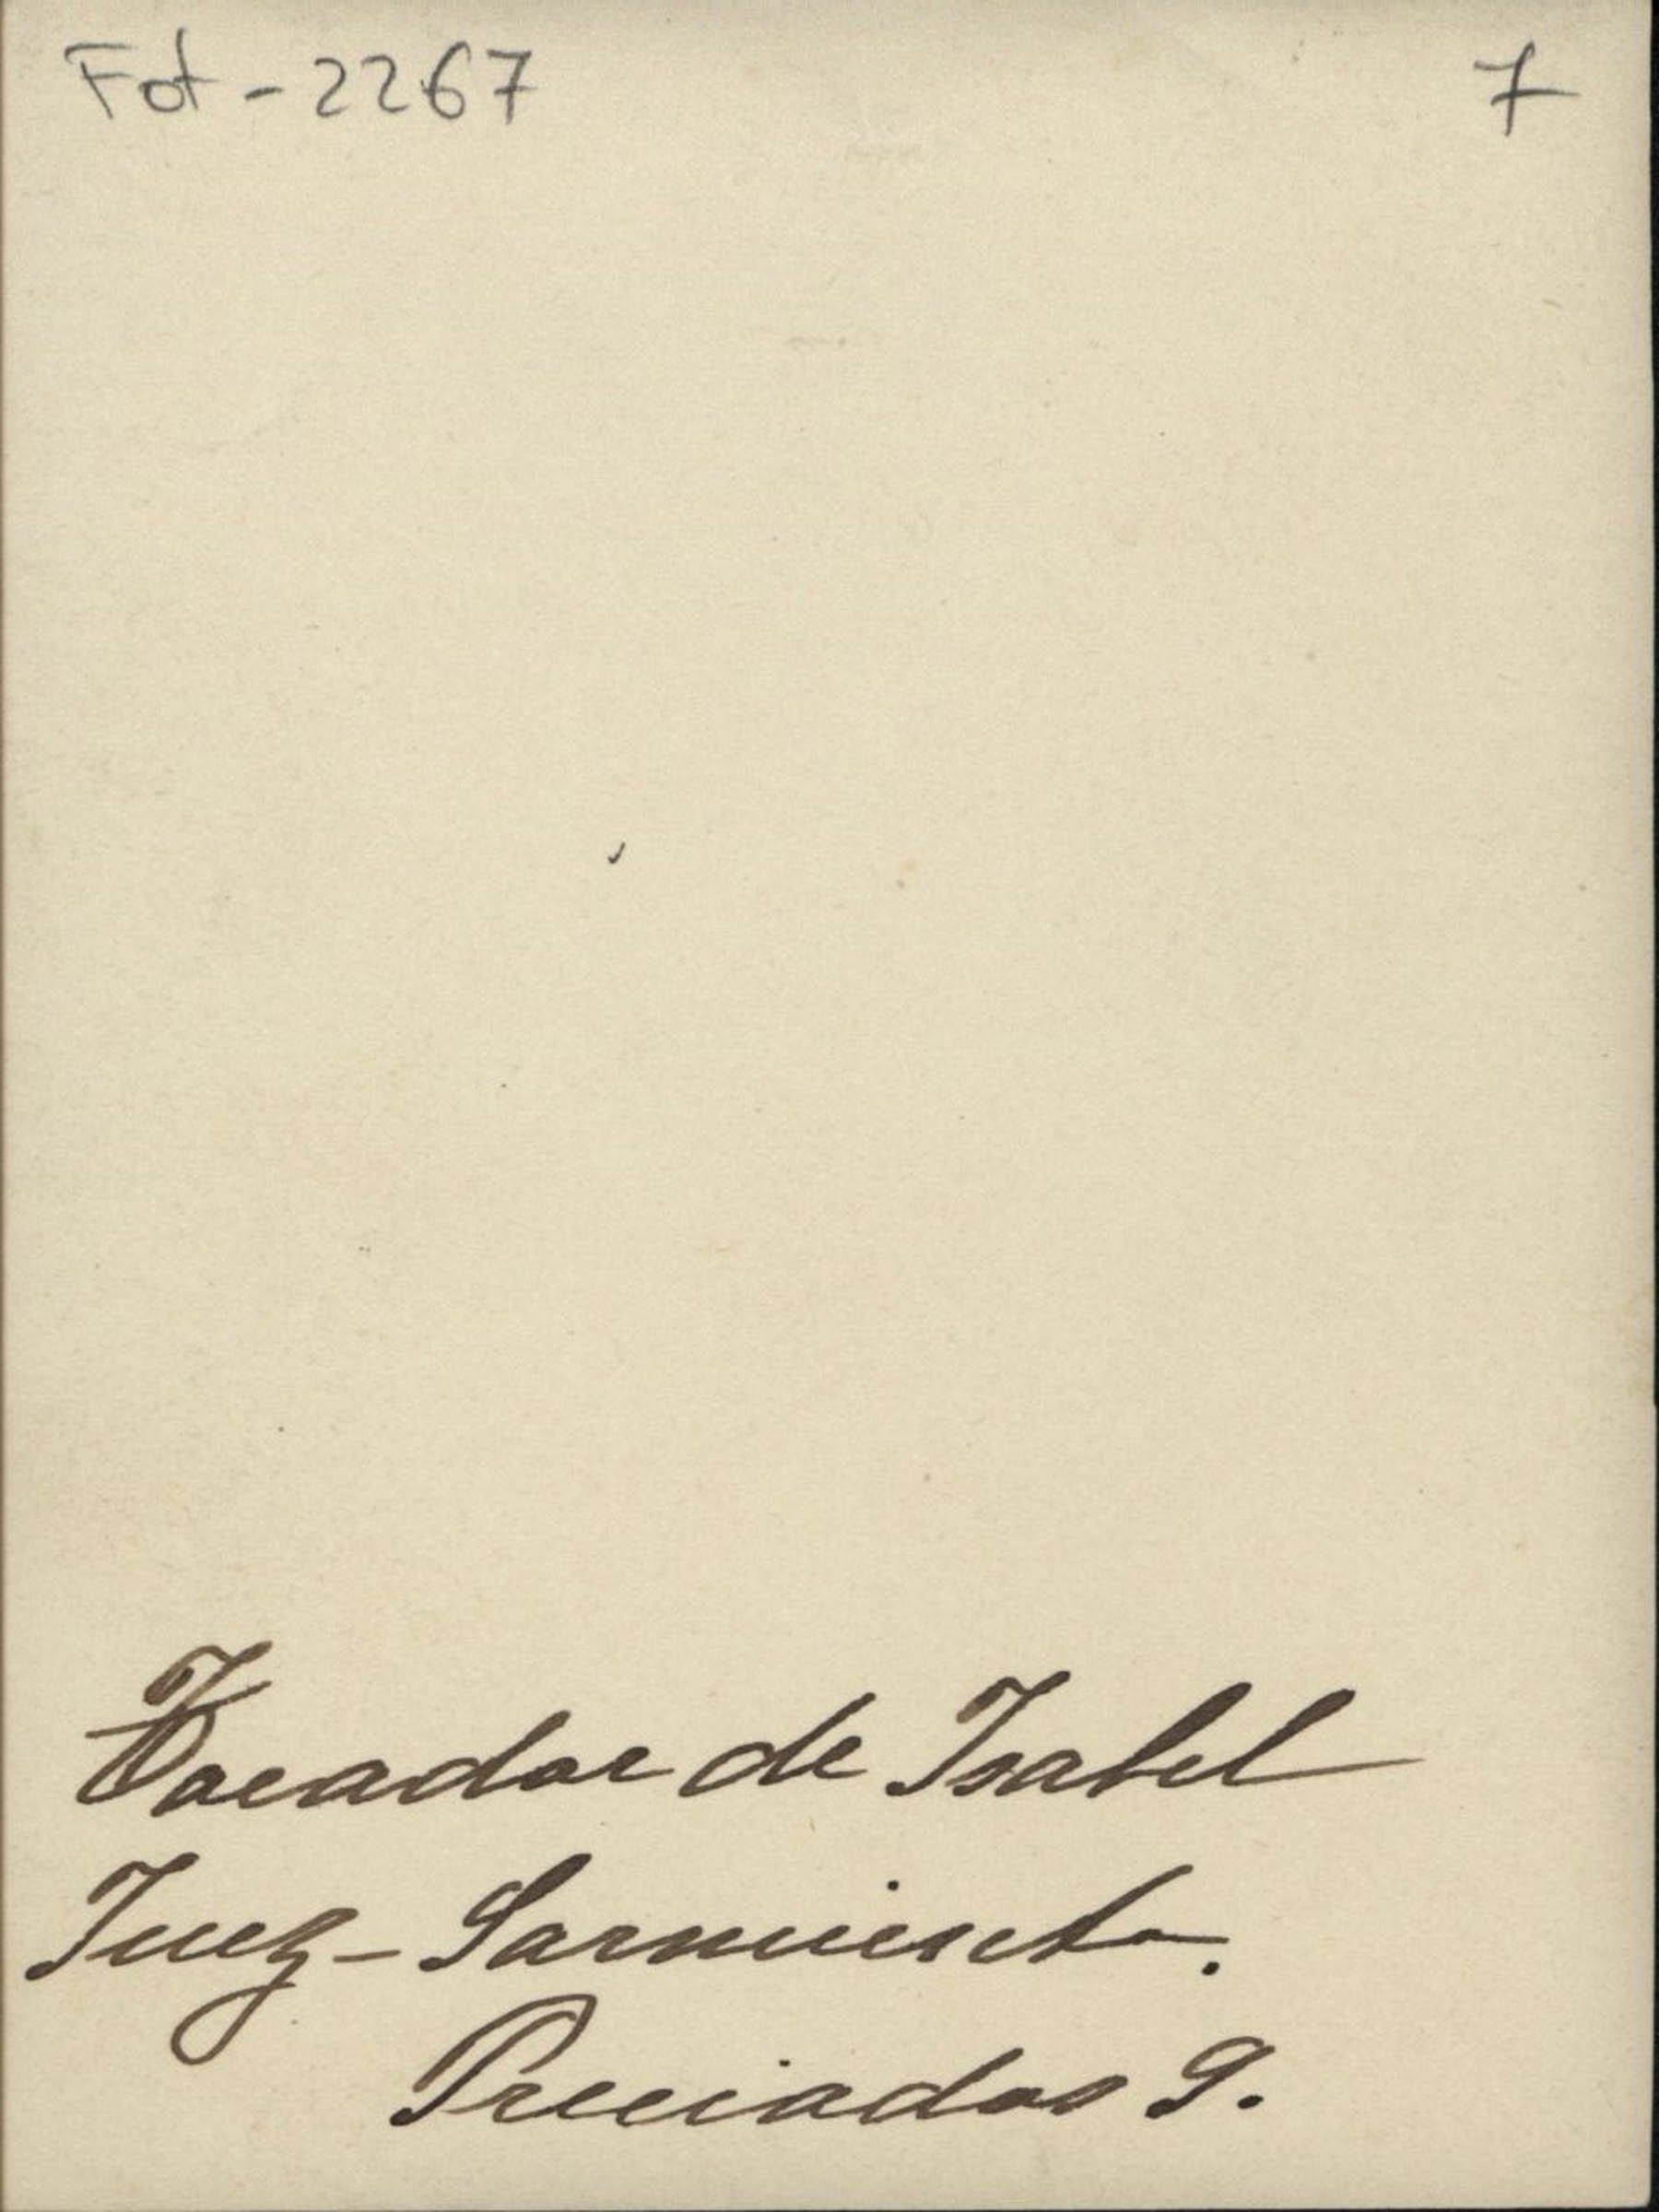 Fot-2267 7
Tocador de Isabel
Juez-Sarmiento.
Preciados 9.